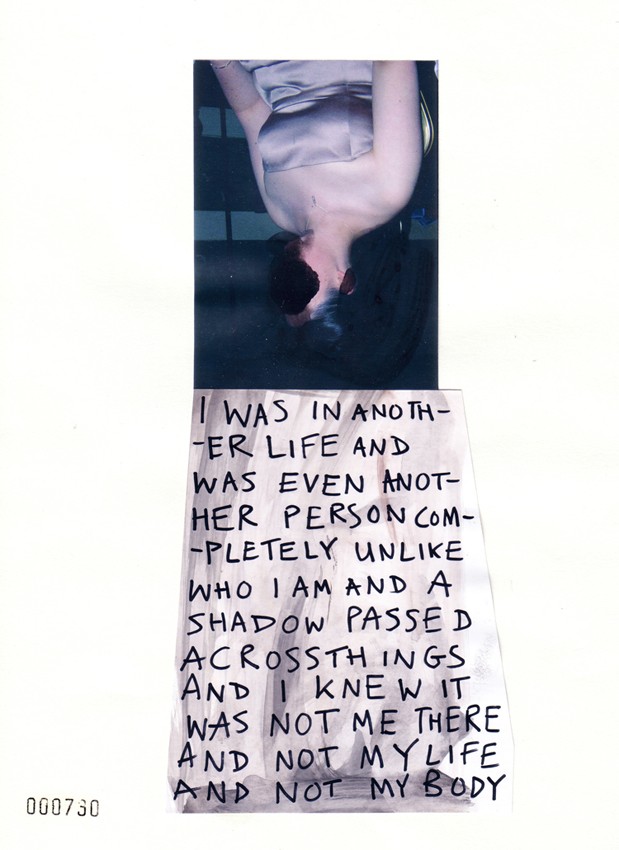 I WAS IN ANOTH-
-ER LIFE AND
WAS EVEN ANOT-
HER PERSON COM-
-PLETELY UNLIKE
WHO I AM AND A
SHADOW PASSED
ACROSS THINGS
AND I KNEW IT
WAS NOT ME THERE
AND NOT MY LIFE
AND NOT MY BODY
000730